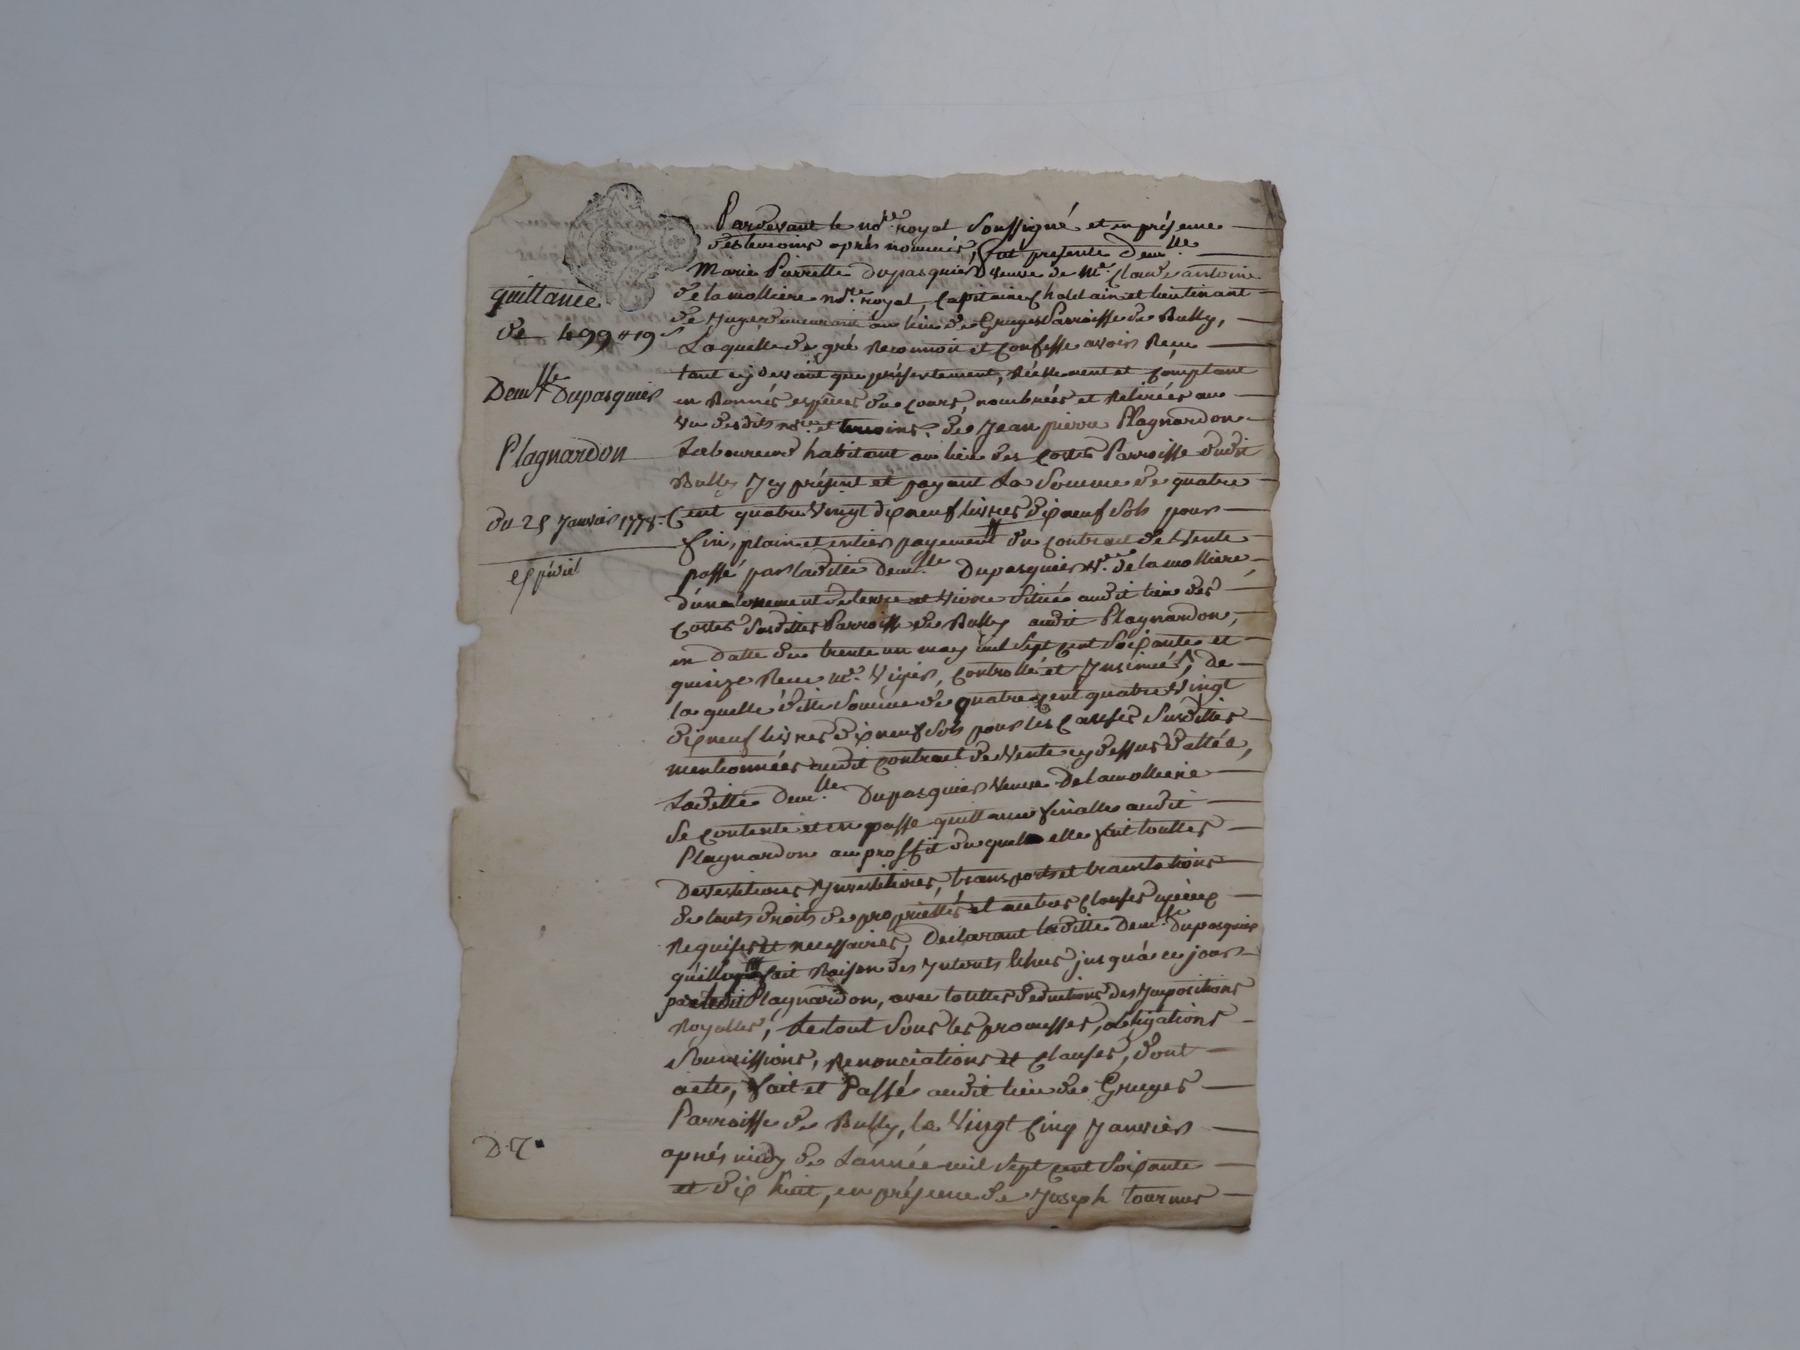 Pardevant le no.re royal Soussigné et en présence
des temoins après nommés, fut presente dem.lle
Marie Pierrette Dupasquier veuve de M.e Claude antoine
delamolliere no.re royal, Capitaine Chatelain et lieutenant
de Juge demeurant au lieu de Gruges Parroisse de Bully,
Laquelle de gré Reconnoit et Confesse avoir Reçu
tant cy devant que présentement, réellement et Comptant
en Bonnes espèces du Cours, nombrées et Retirées au
Vu desdits no.re et temoins, de Jean pierre Plagnardon
Laboureur habitant au lieu des Costes Parroisse dudit
Bully Icy présent et payant La Somme de quatre
Cent quatre Vingt dix neuf livres dix neuf Sols pour
fin, plain et entier payement du Contrat de Vente
passé par laditte dem.lle Dupasquier V.e delamolliere
d'un tenement de terre et Vigne Située audit lieu des
Costes Susdittes Parroisse de Bully audit Plagnardon,
en datte du trente un may mil Sept Cent Soixante et
quinze Reçu M.e Vigier, Controllé et Insinué, de
laquelle ditte Somme de quatre Cent quatre Vingt
dix neuf livres dix neuf Sols pour les Causes Susdittes
mentionnées audit Contrat de Vente cy dessus datté,
Laditte dem.lle Dupasquier Veuve Delamolliere
Se Contente et en passe quittance finalle audit
Plagnardon au proffit duquel elle fait touttes
Devestitures Investitures, transports et translations
de touts droits de proprietté et autres Clauses
Requises et necessaires, Declarant laditte dem.lle Dupasquier
fait Raison des Interets Echus jusqu'à ce jour
par ledit Plagnardon, avec touttes deductions des Impositions
Royalles, Le tout Sous les promesses, obligations
Soumissions, Renonciations et Clauses, dont
acte, fait et Passé audit lieu de Gruges
Parroisse de Bully, le Vingt Cinq Janvier
après midy de L'année mil Sept Cent Soixante
et dix huit, en présence de Joseph tournus
quittance
de 499# 19s
Dem.lle Dupasquier
Plagnardon
du 25 Janvier 1778.